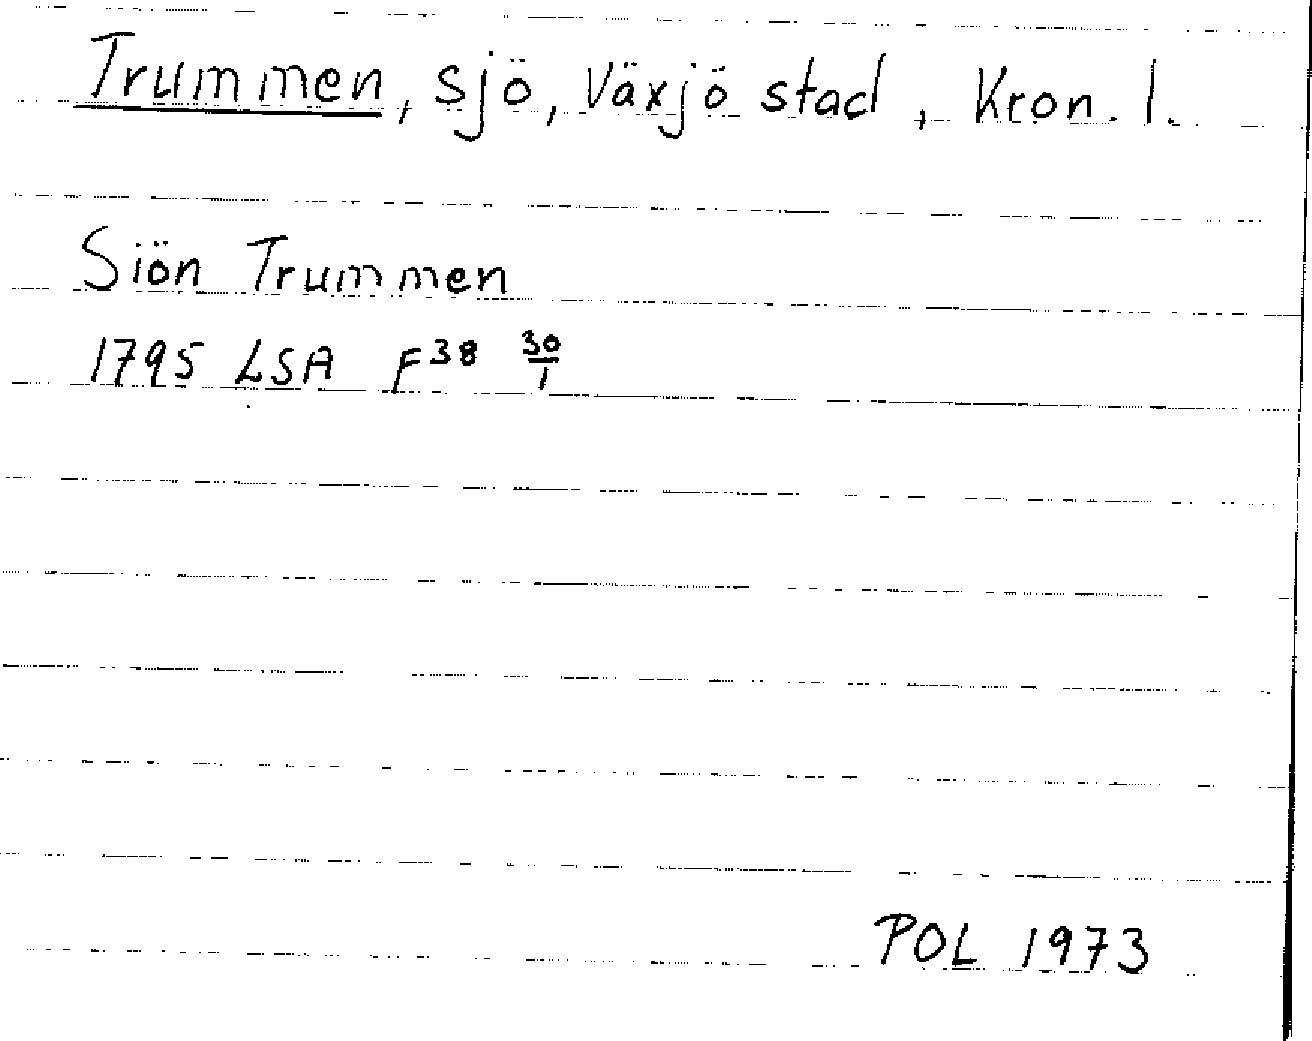 Trummen, sjö, Växjö stad, Kron. l.
Siön Trummen
1795 LSA F³⁸ 30/1
POL 1973